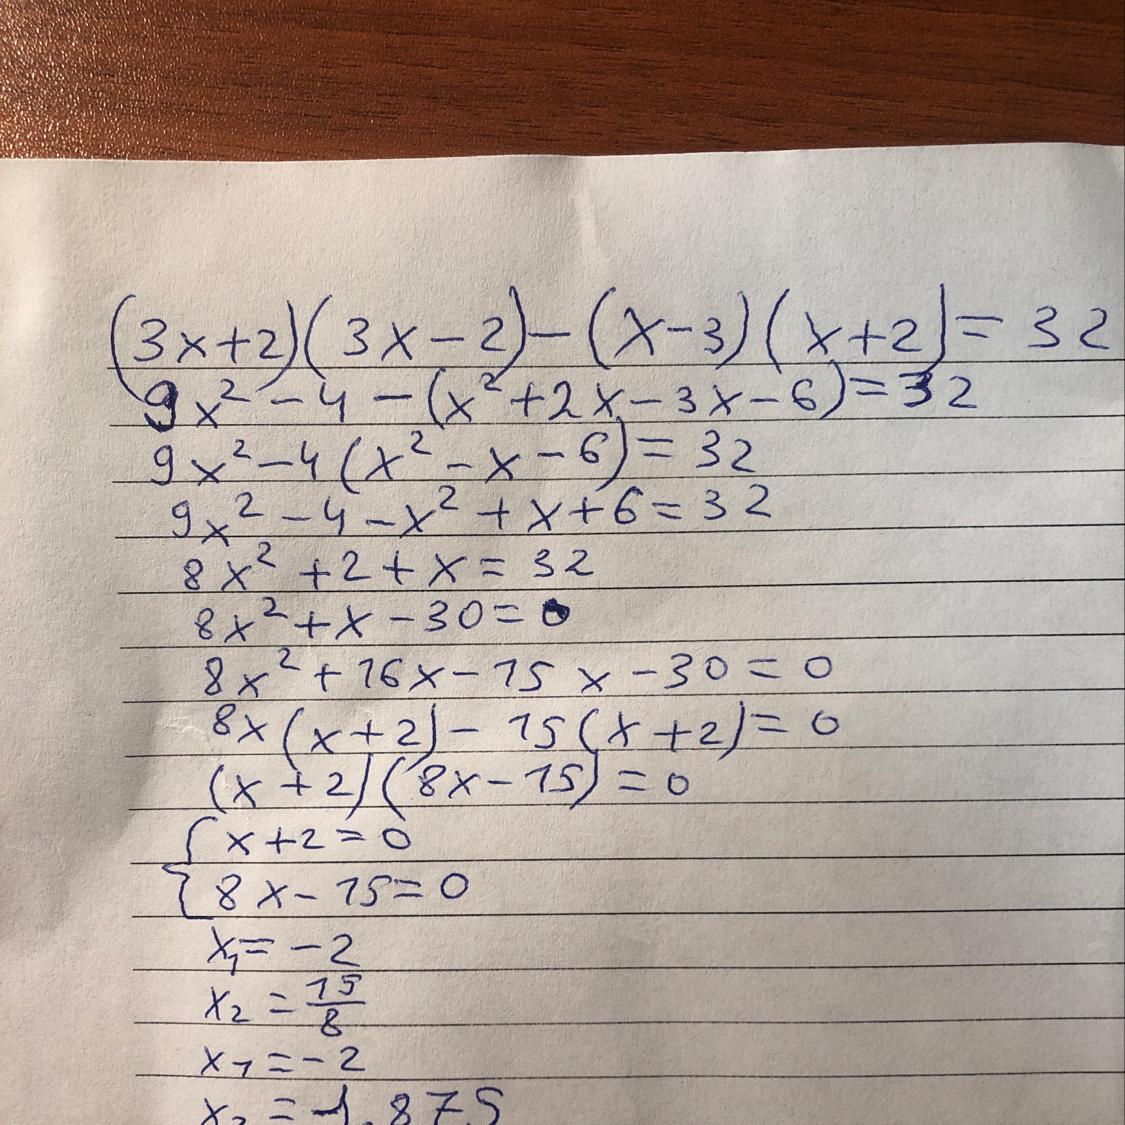 (3x+2)(3x-2)-(x-3)(x+2)=32
9x²-4-(x²+2x-3x-6)=32
9x²-4(x²-x-6)=32
9x²-4-x²+x+6=32
8x²+2+x=32
8x²+x-30=0
8x²+16x-15x-30=0
8x(x+2)-15(x+2)=0
(x+2)(8x-15)=0
{x+2=0
8x-15=0
x₁=-2
x₂=15/8
x₁=-2
x₂=1.875